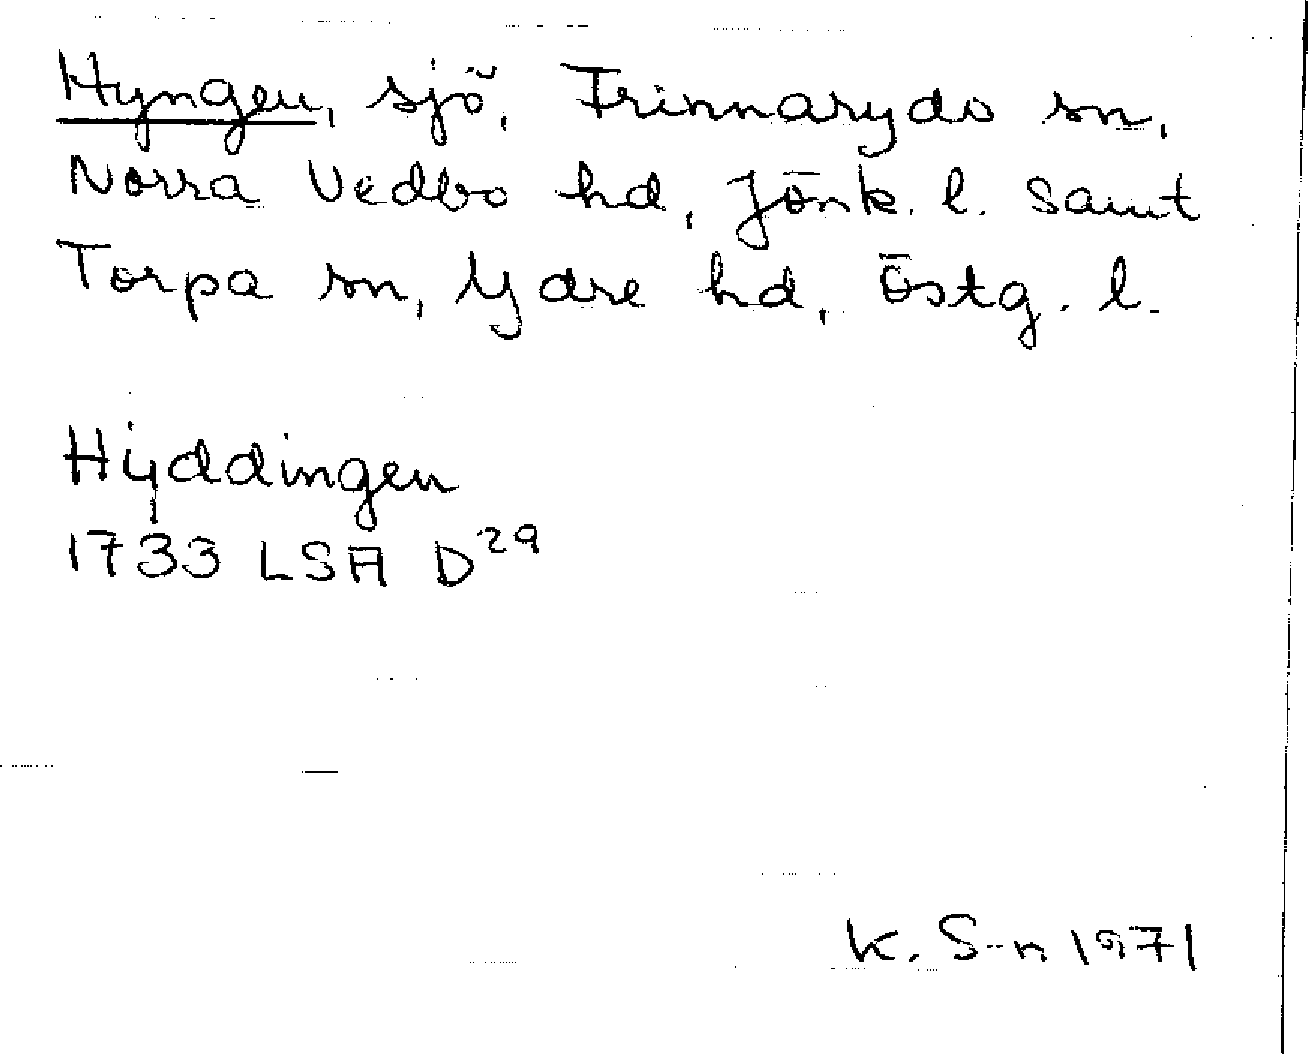 Hyngen, sjö, Frinnaryds sn,
Norra Vedbo hd, Jönk. l. samt
Torpa sn, Ydre hd, Östg. l.
Hÿddingen
1733 LSA D29
K. S-n 1971